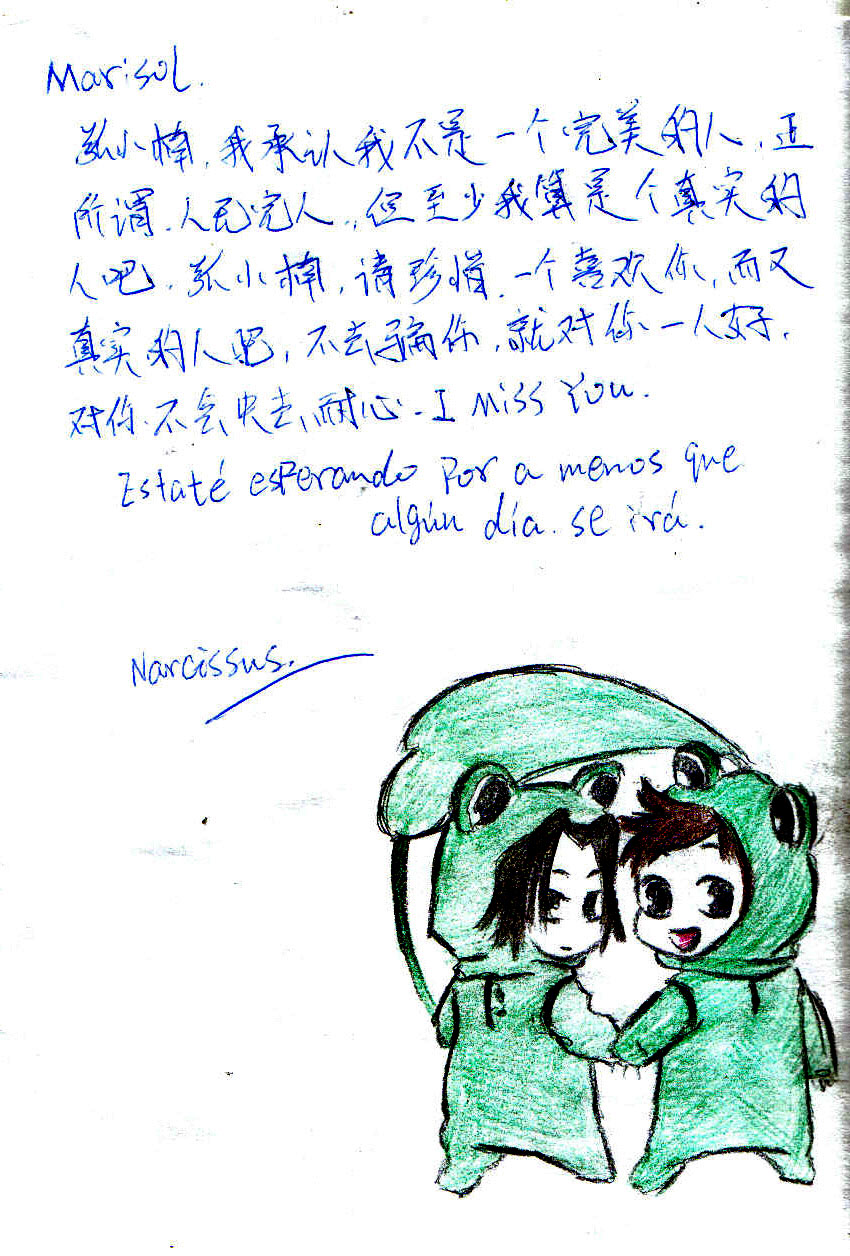 Marisol.
张小楠,我承认我不是一个完美的人,正
所谓.人民完人.,但至少我算是个真实的
人吧.张小楠,请珍惜.一个喜欢你,而又
真实的人吧,不去骗你,就对你一人好.
对你.不会失去耐心.I Miss You.
Estaté esperando por a menos que
algún día. se irá.
Narcissus.